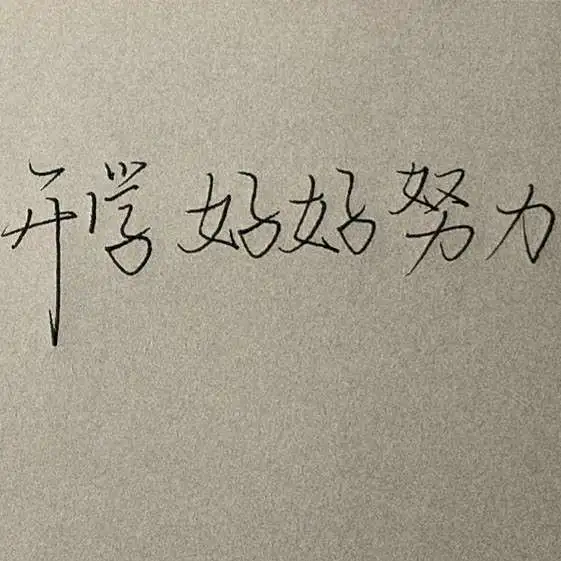 开学好好努力